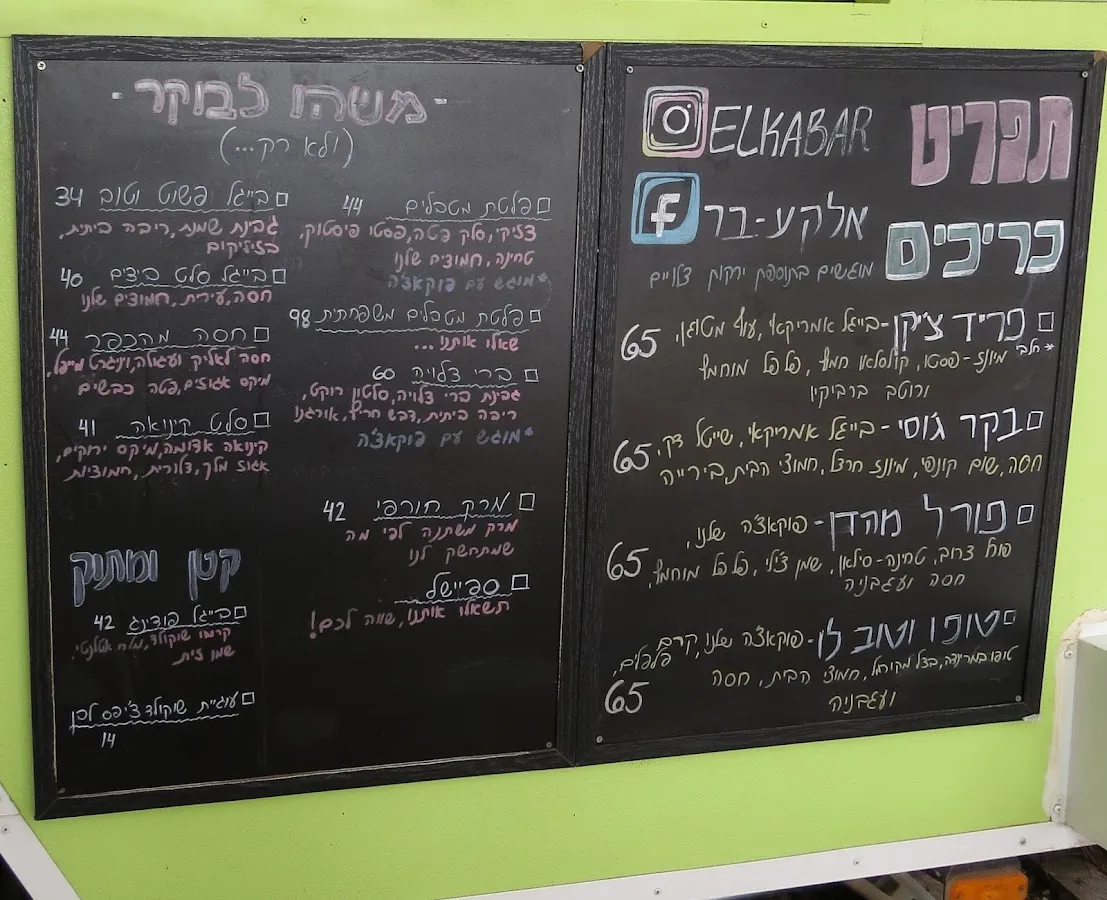 תפריט
ELKABAR
אלקע-בר
כריכים
מוגשים בתוספת ירקות צלויים
פריד צ'יקן - בייגל אמריקאי, עוף מטוגן,
*חלבי מיונז-פסטו, קולסלאו חמוץ, פלפל מוחמץ
ורוטב ברביקיו
65
בקר ג'וסי - בייגל אמריקאי, שייטל דק,
חסה, שום קונפי, מיונז חרדל, חמוצי הבית, בירייה
65
פורל מהדן - פוקאצ'ה שלנו,
פורל צרוב, טחינה-סילאן, שמן צ'ילי, פלפל מוחמץ,
חסה ועגבניה
65
טופו וטוב לו - פוקאצ'ה שלנו, קרם פלפלים,
טופו במרינדה, בצל מקורמל, חמוצי הבית, חסה
ועגבניה
65
- משהו לבוקר -
(ולא רק...)
פלטת מטבלים 44
צזיקי, סלק פטה, פסטו פיסטוק,
טחינה, חמוצים שלנו
*מוגש עם פוקאצ'ה
פלטת מטבלים משפחתית 98
שאלו אותנו...
ברי צלויה 60
גבינת ברי צלויה, סלטון רוקט,
ריבה ביתית, דבש חריף, אורגנו
*מוגש עם פוקאצ'ה
מרק חורפי 42
מרק משתנה לפי מה
שמתחשק לנו
ספיישל
תשאלו אותנו, שווה לכם!
בייגל פשוט וטוב 34
גבינת שמנת, ריבה ביתית,
בזיליקום
בייגל סלט ביצים 40
חסה, עירית, חמוצים שלנו
חסה מהכפר 44
חסה לאליק ועגולה, ויניגרט מייפל,
מיקס אגוזים, פטה כבשים
סלט קינואה 41
קינואה אדומה, מיקס ירוקים,
אגוז מלך, צלורית, חמוציות
קטן ומתוק
בייגל פודינג 42
קרמו שוקולד, מלח אטלנטי,
שמן זית
עוגיית שוקולד צ'יפס לבן
14